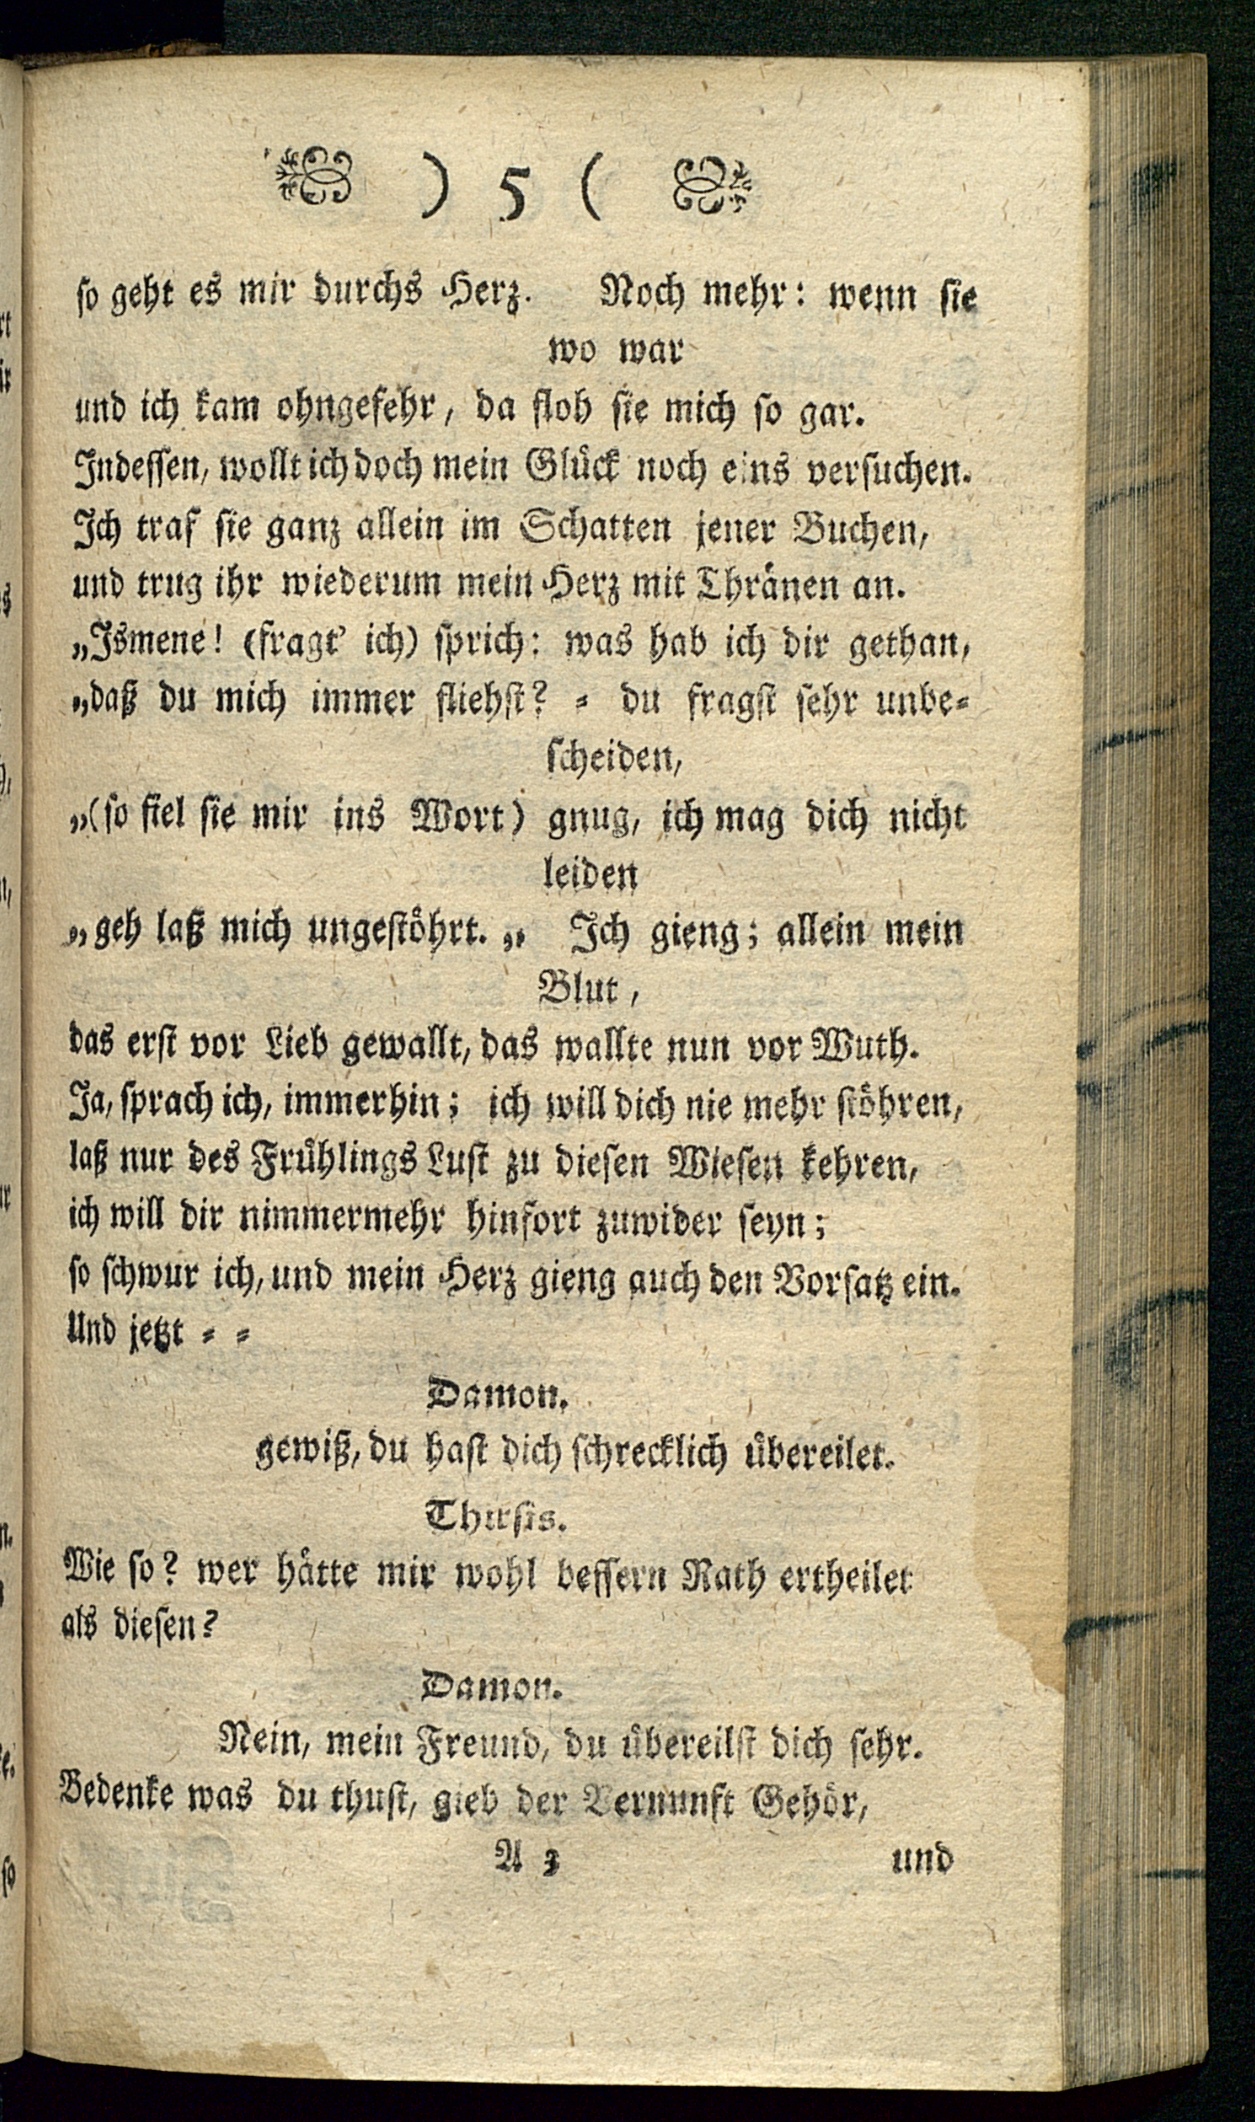 ) 5 (
so geht es mir durchs Herz. Noch mehr: wenn sie
wo war
und ich kam ohngefehr, da floh sie mich so gar.
Indessen, wollt ich doch mein Glück noch eins versuchen.
Ich traf sie ganz allein im Schatten jener Buchen,
und trug ihr wiederum mein Herz mit Thränen an.
„Ismene! (fragt' ich) sprich: was hab ich dir gethan,
„daß du mich immer fliehst? - du fragst sehr unbe-
scheiden,
„(so fiel sie mir ins Wort) gnug, ich mag dich nicht
leiden
„geh laß mich ungestöhrt. „ Ich gieng; allein mein
Blut,
das erst vor Lieb gewallt, das wallte nun vor Wuth.
Ja, sprach ich, immerhin; ich will dich nie mehr stöhren,
laß nur des Frühlings Lust zu diesen Wiesen kehren,
ich will dir nimmermehr hinfort zuwider seyn;
so schwur ich, und mein Herz gieng auch den Vorsatz ein.
Und jetzt - -
Damon.
gewiß, du hast dich schrecklich übereilet.
Thirsis.
Wie so? wer hätte mir wohl bessern Rath ertheilet
als diesen?
Damon.
Nein, mein Freund, du übereilst dich sehr.
Bedenke was du thust, gieb der Vernunft Gehör,
A 3 und